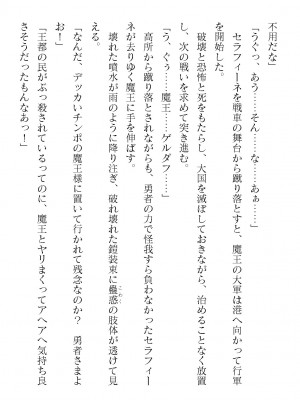 不用だな」
「うぐっ、あう……そん……な……あぁ……」
セラフィーネを戦車の舞台から蹴り落とすと、魔王の大軍は港へ向かって行軍
を開始した。
破壊と恐怖と死をもたらし、大国を滅ぼしておきながら、治めることなく放置
し、次の戦いを求めて突き進む。
「う、ぐぅ……魔王……ゲルダフ……」
高所から蹴り落とされながらも、勇者の力で怪我すら負わなかったセラフィー
ネが去りゆく魔王に手を伸ばす。
壊れた噴水が雨のように降り注ぎ、破れ壊れた鎧装束に蠱惑の肢体が透けて見
える。
「なんだ、デッカいチンポの魔王様に置いて行かれて残念なのか? 勇者さまよ
お!」
「王都の民がぶっ殺されているってのに、魔王とヤリまくってアヘアヘ気持ち良
さそうだったもんなあっ!」